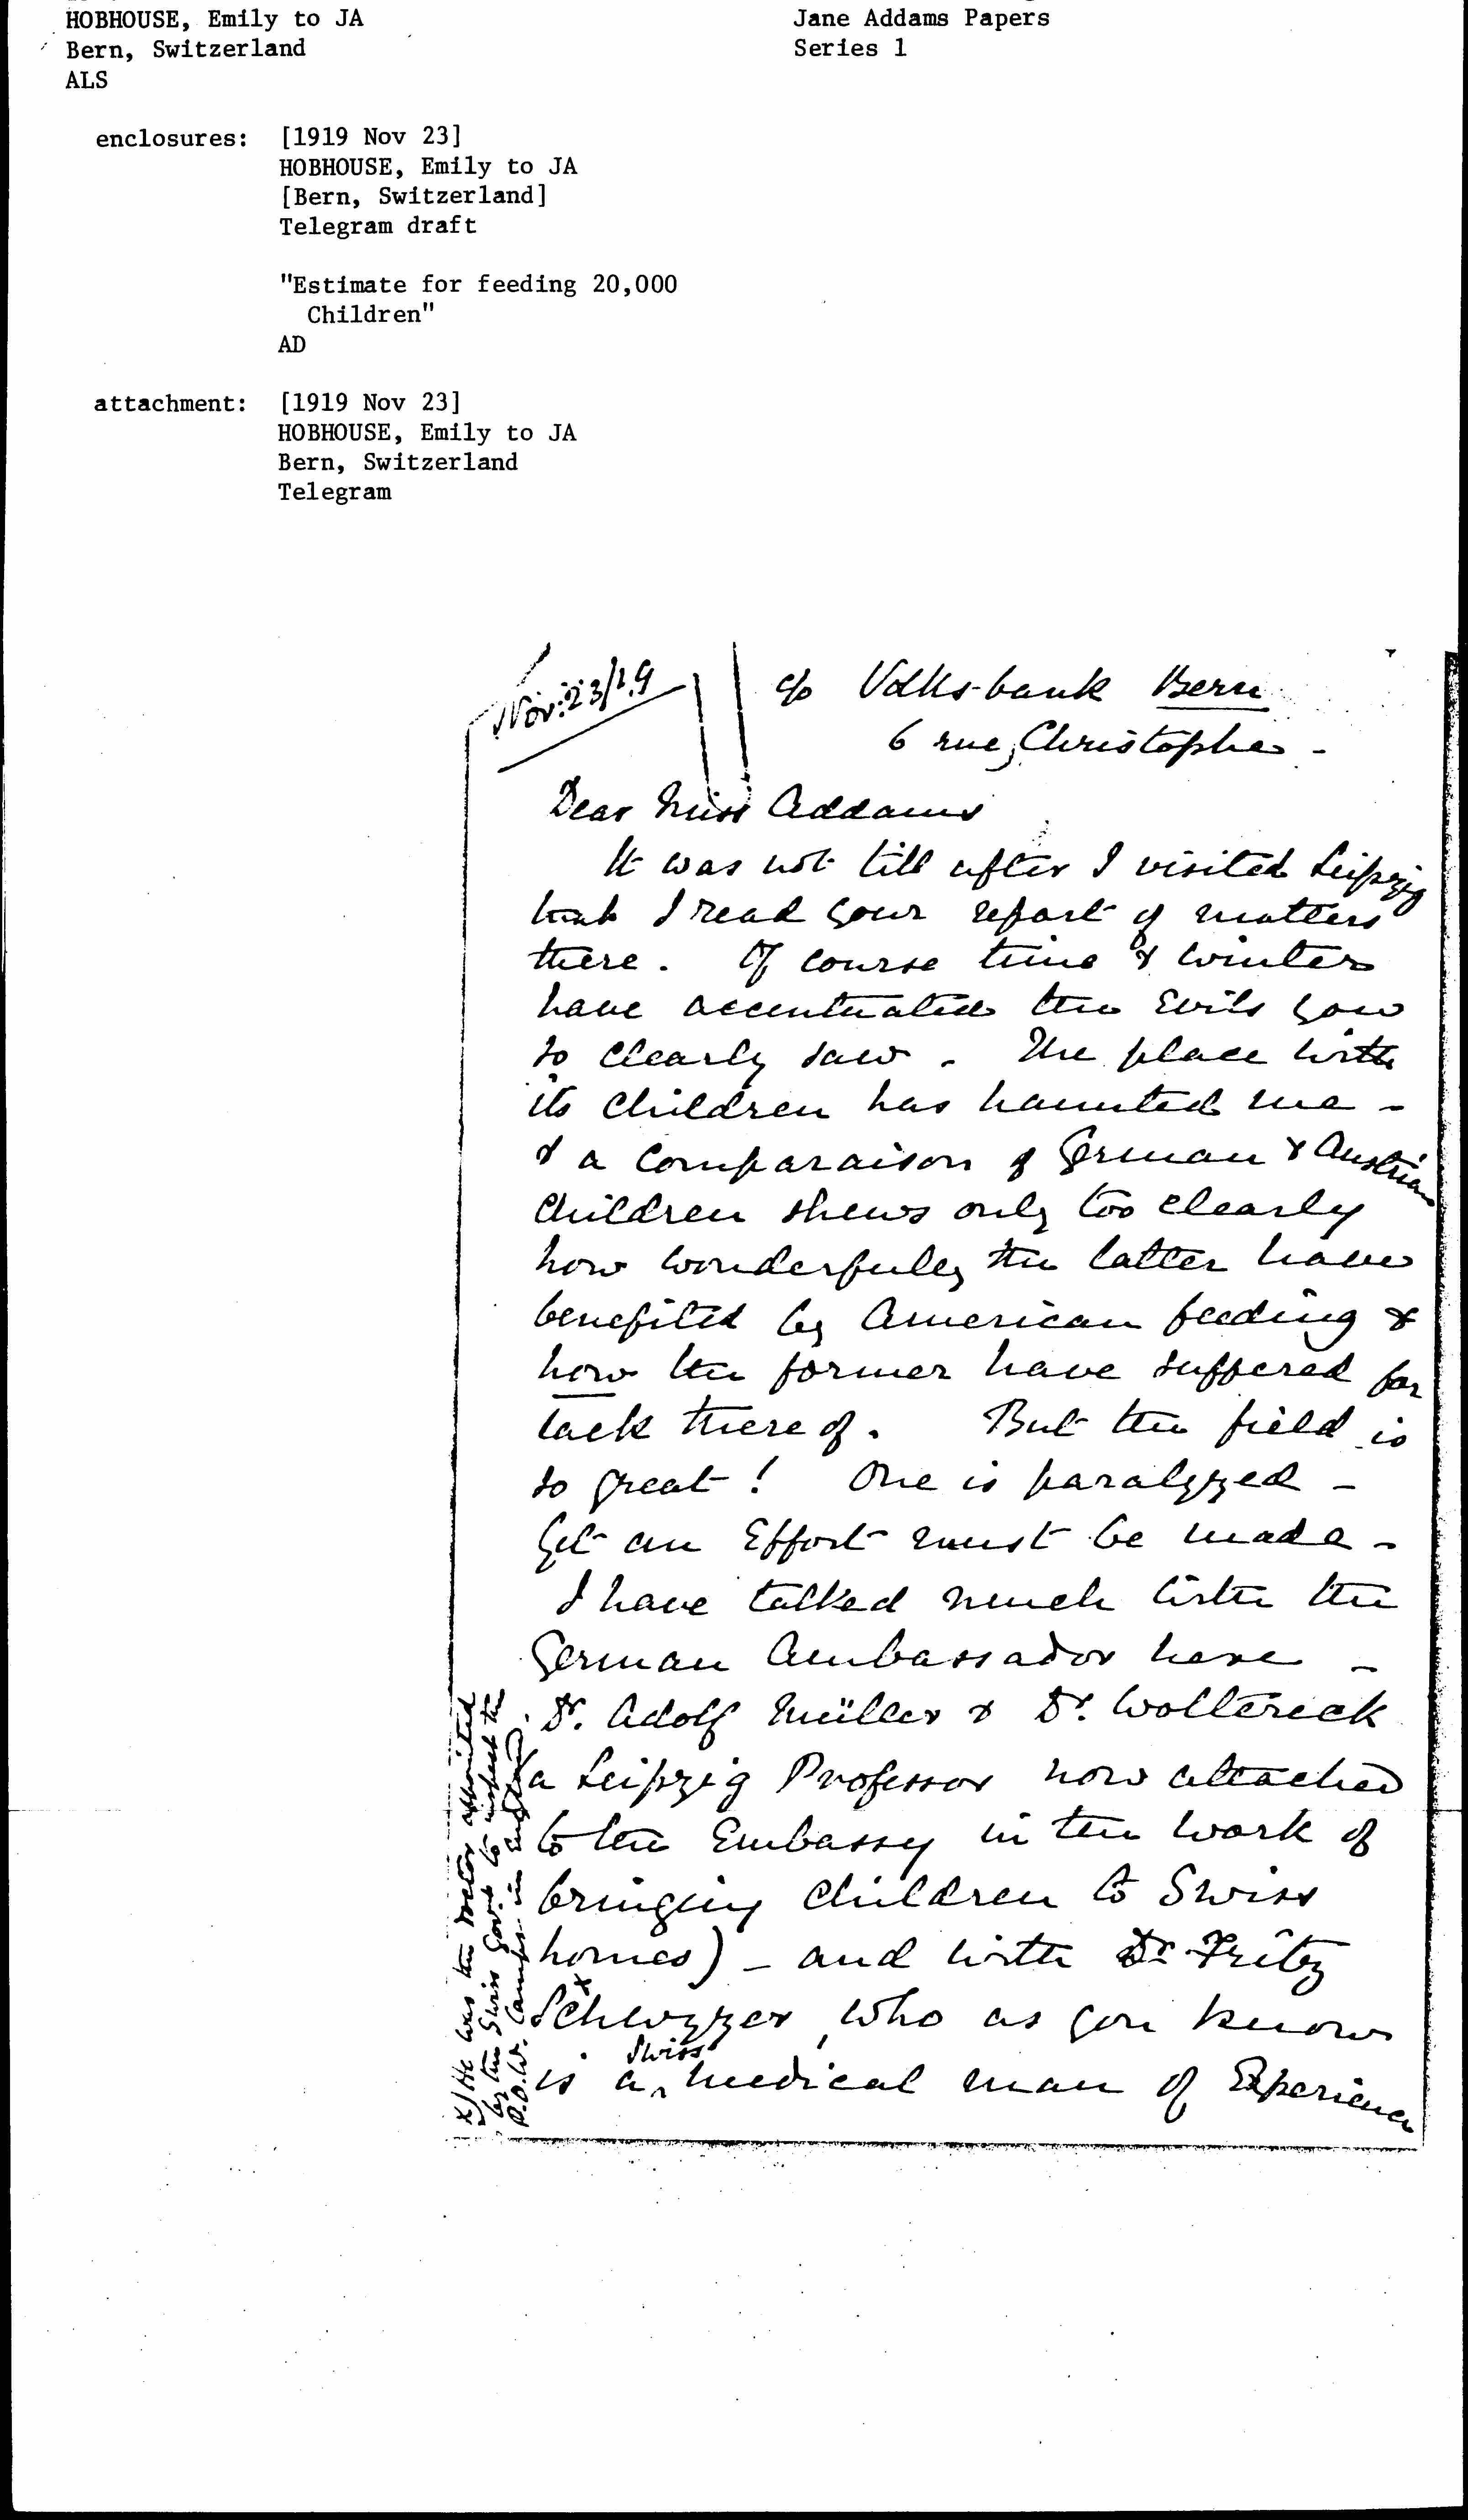 HOBHOUSE, Emily to JA
Bern, Switzerland
ALS
Jane Addams Papers
Series 1
enclosures: [1919 Nov 23]
HOBHOUSE, Emily to JA
[Bern, Switzerland]
Telegram draft
"Estimate for feeding 20,000
Children"
AD
attachment: [1919 Nov 23]
HOBHOUSE, Emily to JA
Bern, Switzerland
Telegram
Nov: 23/19
c/o Volks-bank Bern
6 rue, Christophe -
Dear Miss Addams
It was not till after I visited Leipzig
that I read your report of matters
there. Of course time & winter
have accentuated the Evils you
so clearly saw. The place with
its children has haunted me -
& a comparaison of German & Austrian
children shews only too clearly
how wonderfully the latter have
benefited by American feeding &
how the former have suffered for
lack thereof. But the field is
so great! One is paralyzed -
Yet an Effort must be made -
I have talked much with the
German Ambassador here -
Dr. Adolf Müller & Dr. Woltereck
(a Leipzig Professor now attached
to the Embassy in the work of
bringing children to Swiss
homes) - and with Dr Fritz
Schwyzer x, who as you know
is a Swiss medical man of Experience
x/ He was the Doctor appointed
by the Swiss Govt to inspect the
P.O.W. Camps in England.